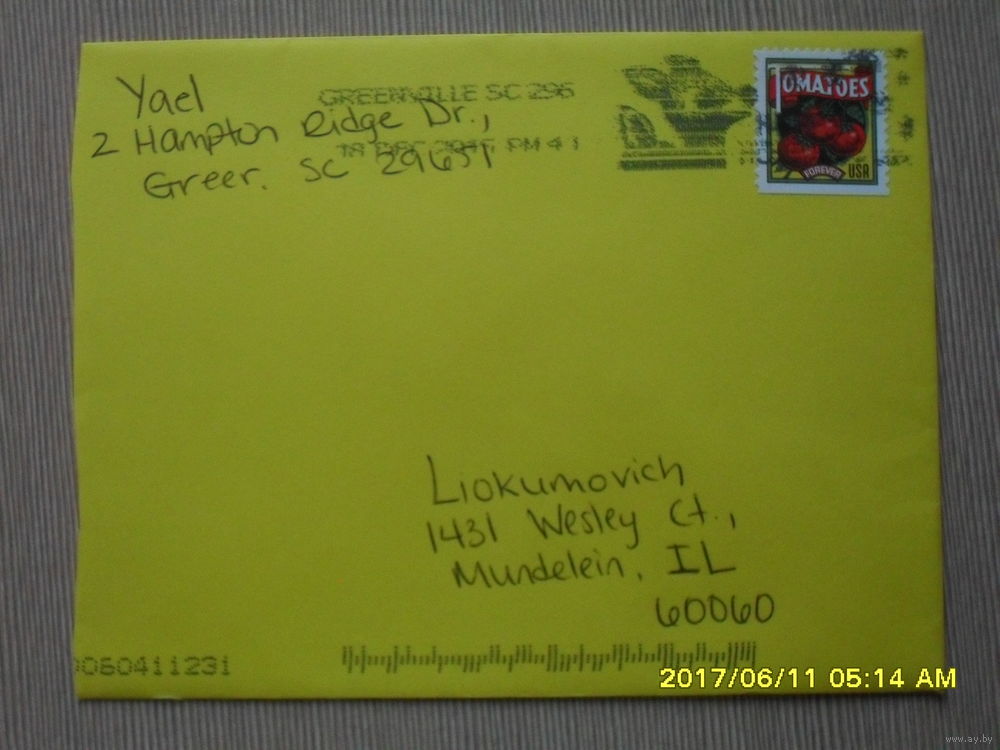 Yael
2 Hampton Ridge Dr.,
Greer. SC 29651
GREENVILLE SC 296
PM 4 1
TOMATOES
FOREVER
USA
Liokumovich
1431 Wesley Ct.,
Mundelein, IL
60060
0060411231
2017/06/11 05:14 AM
www.ay.by